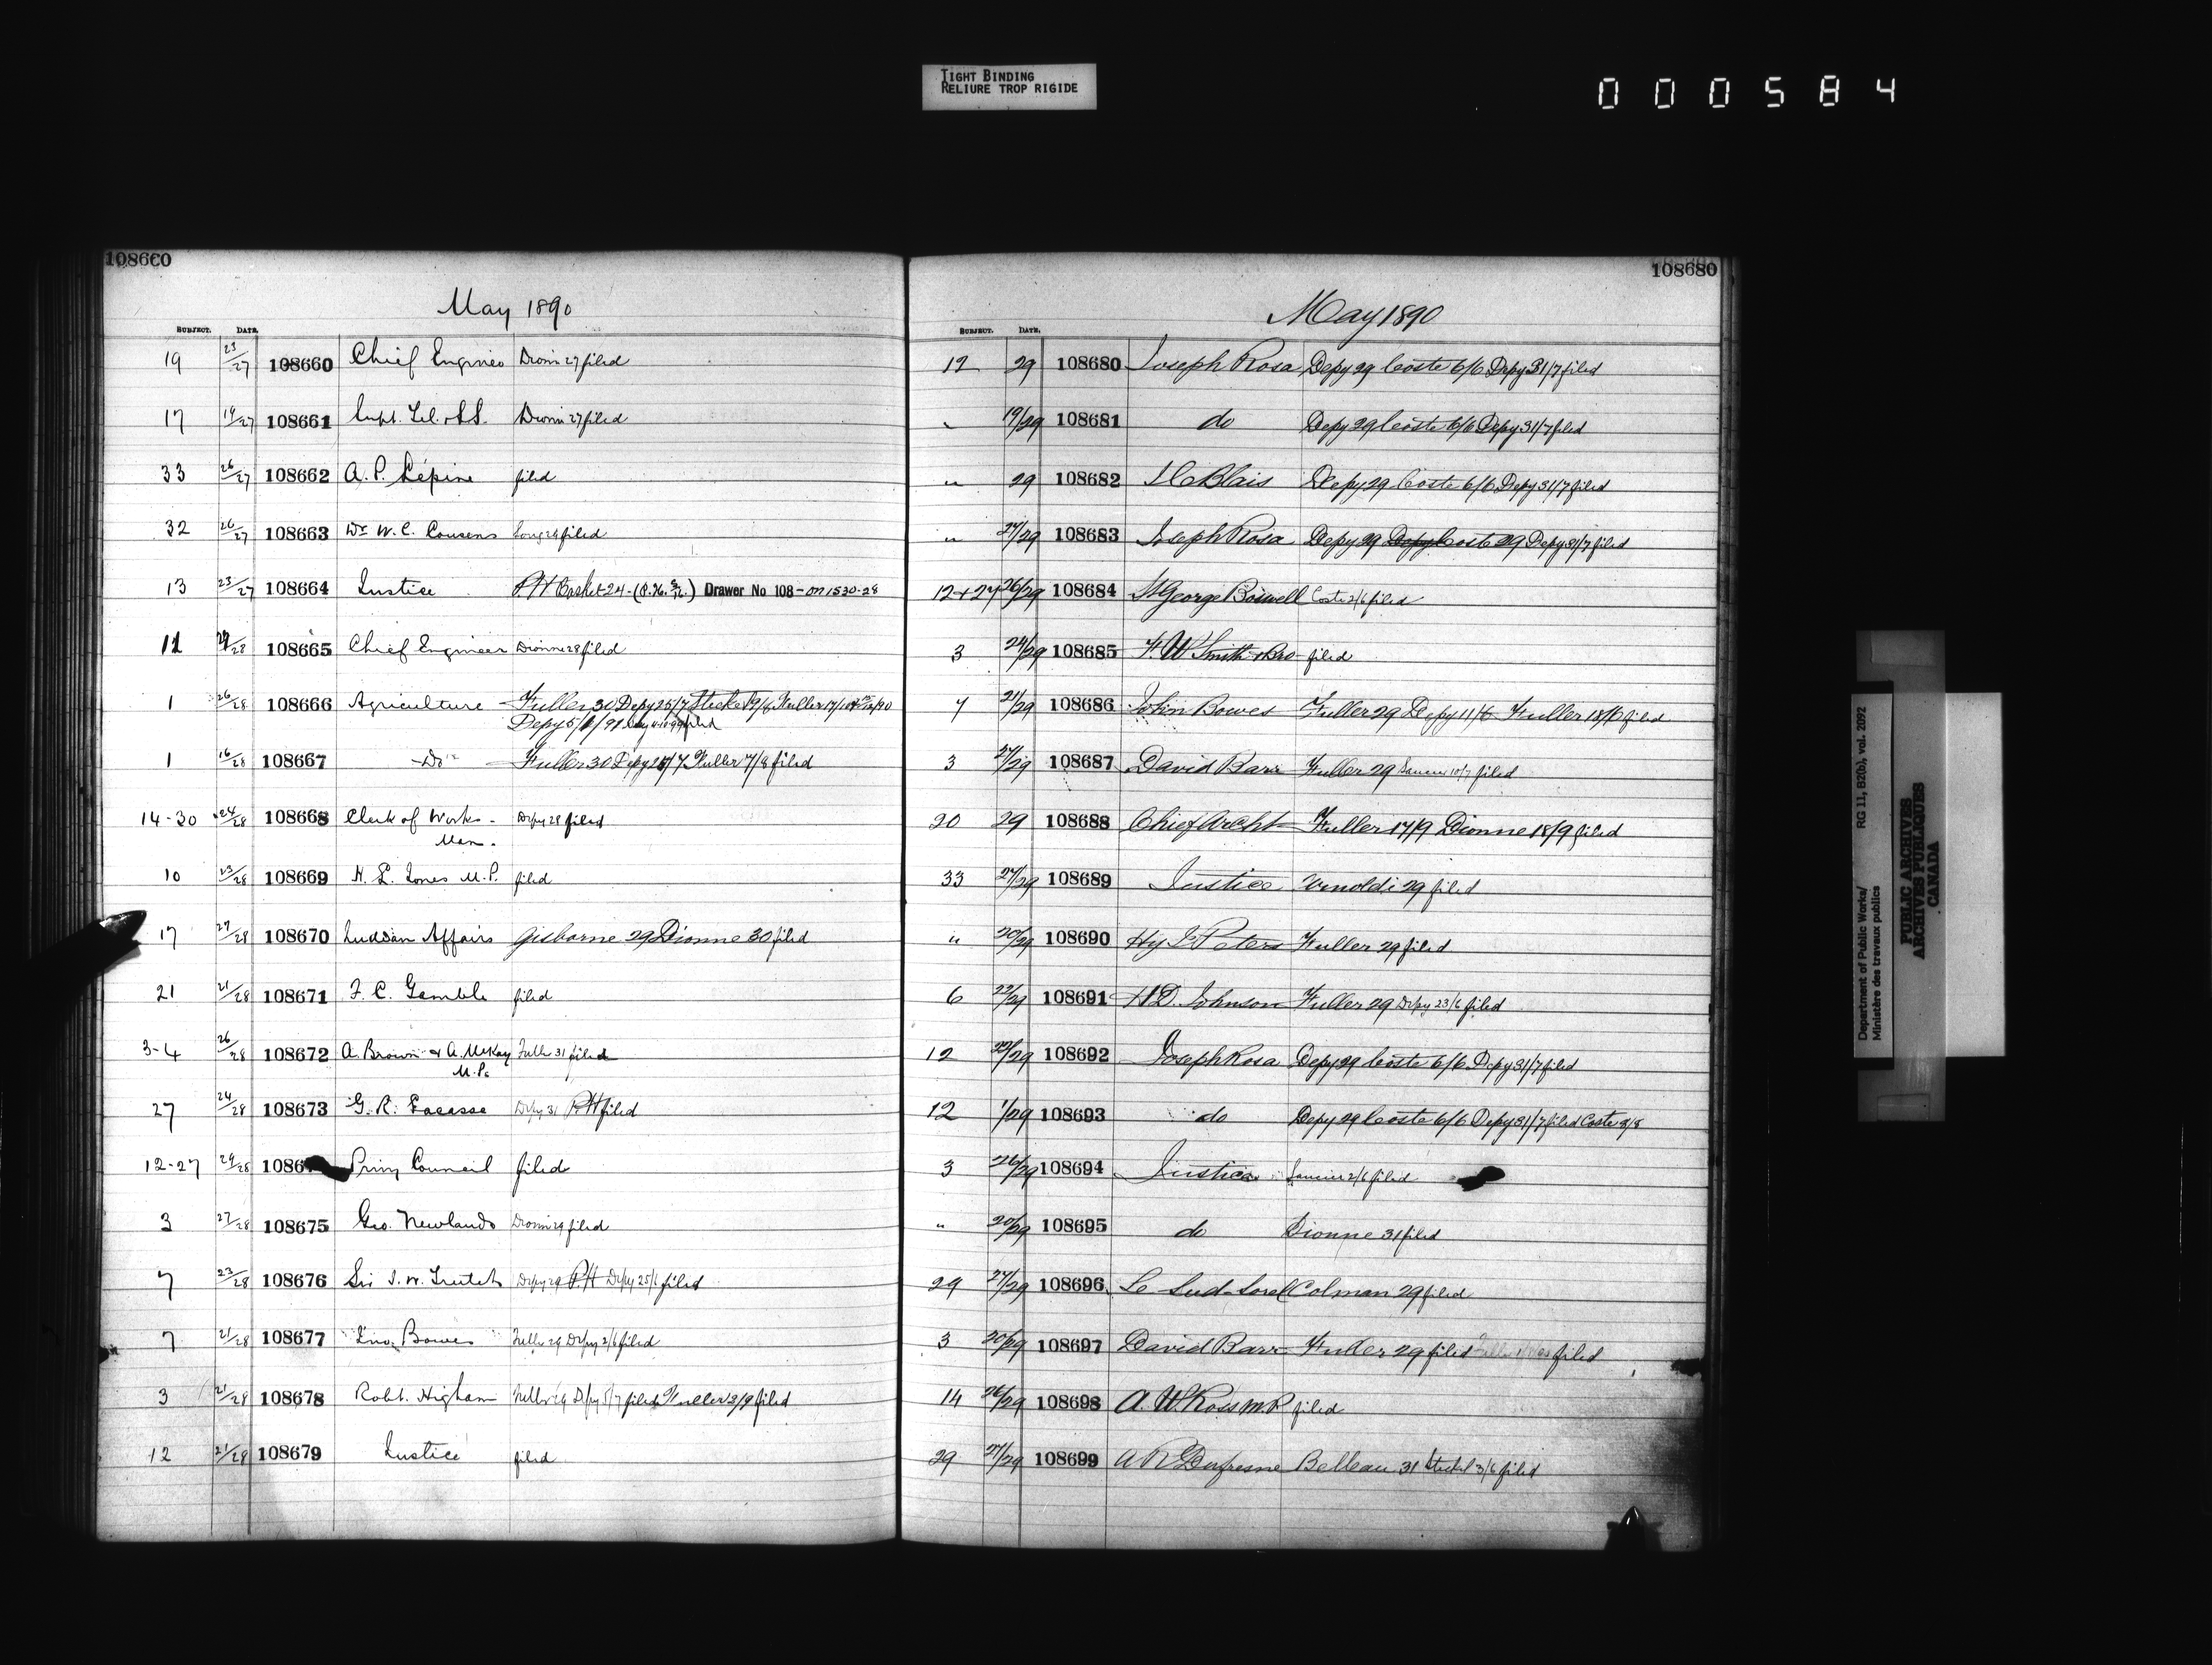 TIGHT BINDING
RELIURE TROP RIGIDE
000584
108660
May 1890
SUBJECT. DATE.
19 23/27 108660 Chief Engineer Dionne 27 filed
17 19/27 108661 Supt. Tel. & S.S. Dionne 27 filed
33 26/27 108662 A. P. Lépine filed
32 26/27 108663 Dr. W. C. Cousens 28 filed
13 23/27 108664 Justice P.H Casket 24 - Drawer No 108 - on 1530-28
11 28 108665 Chief Engineer Dionne 28 filed
1 26/28 108666 Agriculture Fuller 30 Depy 25/7 Steckel 19/6 Fuller 17/10
Depy 5/1/91 filed
1 16/28 108667 Do Fuller 30 Depy 25/7 Fuller 7/8 filed
14-30 24/28 108668 Clerk of Works - Depy 28 filed
Man.
10 23/28 108669 H. L. Jones M.P. filed
17 27/28 108670 Indian Affairs Gisborne 29 Dionne 30 filed
21 21/28 108671 F. C. Gamble filed
3-4 26/28 108672 A. Brown & A. McKay Fuller 31 filed
M.Ps
27 24/28 108673 G. R. Lacasse Depy 31 PH filed
12-27 28 1086 Privy Council filed
3 27/28 108675 Geo. Newlands Dionne 29 filed
7 23/28 108676 Sir J. W. Trutch Depy 29 PH Depy 25/6 filed
7 21/28 108677 Jno. Bowes Fuller 29 Depy 2/6 filed
3 21/28 108678 Robt. Higham Fuller 29 Depy 5/7 filed Fuller 13/9 filed
12 21/28 108679 Justice filed
108680
May 1890
SUBJECT. DATE.
12 29 108680 Joseph Rosa Depy 29 Coste 6/6 Depy 31/7 filed
" 19/29 108681 do Depy 29 Coste 6/6 Depy 31/7 filed
" 29 108682 Blais Depy 29 Coste 6/6 Depy 31/7 filed
" 27/29 108683 Joseph Rosa Depy 29 Depy Coste 29 Depy 31/7 filed
12+27 26/29 108684 St George Boswell Coste 2/6 filed
3 24/29 108685 F. W. Smith & Bro filed
7 21/29 108686 John Bowes Fuller 29 Depy 11/6 Fuller 18/6 filed
3 27/29 108687 David Barr Fuller 29 10/7 filed
20 29 108688 Chief Archt Fuller 17/9 Dionne 18/9 filed
33 27/29 108689 Justice Arnoldi 29 filed
" 20/29 108690 Hy J Peters Fuller 29 filed
6 23/29 108691 H D. Johnson Fuller 29 Depy 23/6 filed
12 22/29 108692 Joseph Rosa Depy 29 Coste 6/6 Depy 31/7 filed
12 1/29 108693 do Depy 29 Coste 6/6 Depy 31/7 filed Coste 8/8
3 26/29 108694 Justice 2/6 filed
" 20/29 108695 do Dionne 31 filed
29 27/29 108696 Le Sud-Sorel Colman 29 filed
3 20/29 108697 David Barr Fuller 29 filed filed
14 26/29 108698 A. W. Ross M.P filed
29 27/29 108699 A R Dufresne Belleau 31 Steckel 3/6 filed
Department of Public Works/ RG 11, B2(b), vol. 2092
Ministère des travaux publics
PUBLIC ARCHIVES
ARCHIVES PUBLIQUES
CANADA